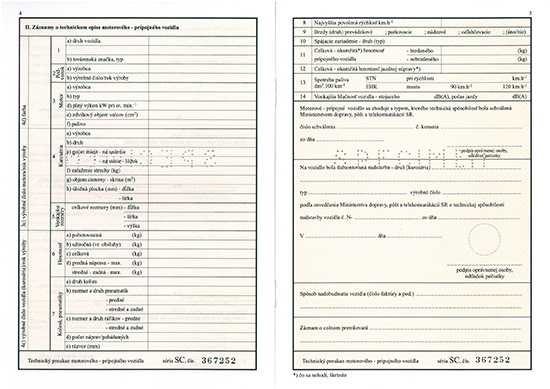 4
II. Záznamy o technickom opise motorového - prípojného vozidla
a) druh vozidla
1
b) továrenská značka, typ
a) výrobca
2
b) výrobné číslo/rok výroby
a) výrobca
b) typ
3 Motor
d) plný výkon kW pri ot. min⁻¹
e) zdvihový objem valcov (cm³)
f) palivo
a) výrobca
b) druh
4 Karoséria
c) počet miest - na sedenie
- na státie - lôžok
f) zaťaženie strechy (kg)
g) objem cisterny - skrine (m³)
h) úložná plocha (mm) - dĺžka
- šírka
5 Vonkajšie rozmery
celkové rozmery (mm) - dĺžka
- šírka
- výška
a) pohotovostná (kg)
b) užitočná (vr. obsluhy) (kg)
6 Hmotnosť
c) celková (kg)
d) predná náprava - max. (kg)
stredná - zadná - max. (kg)
a) druh kolies
b) rozmer a druh pneumatík
- predné
- stredné a zadné
7 Kolesá, pneumatiky
c) rozmer a druh ráfikov - predné
- stredné a zadné
d) počet náprav/poháňaných
e) rázvor (mm)
4d) farba
3c) výrobné číslo motora/rok výroby
4c) výrobné číslo vozidla (karosérie)/rok výroby
SPECIMEN
Technický preukaz motorového - prípojného vozidla séria SC, čís. 367252
5
8 Najvyššia povolená rýchlosť km.h⁻¹
9 Brzdy (druh) prevádzkové ; parkovacie ; núdzové ; odľahčovacie ; (áno/nie)
10 Spájacie zariadenie - druh (typ)
11 Celková - okamžitá*) hmotnosť - brzdeného (kg)
prípojného vozidla - nebrzdeného (kg)
12 Celková - okamžitá hmotnosť jazdnej súpravy*) (kg)
13 Spotreba paliva STN pri rýchlosti km.h⁻¹
dm³.100 km⁻¹ EHK mesto 90 km.h⁻¹ 120 km.h⁻¹
14 Vonkajšia hlučnosť vozidla - stojaceho dB(A), počas jazdy dB(A)
Motorové - prípojné vozidlo sa zhoduje s typom, ktorého technická spôsobilosť bola schválená
Ministerstvom dopravy, pôšt a telekomunikácií SR.
číslo schválenia č. konania
zo dňa
podpis oprávnenej osoby,
odtlačok pečiatky
SPECIMEN
Na vozidlo bola namontovaná nadstavba - druh (karoséria)
typ výrobné číslo
podľa osvedčenia Ministerstva dopravy, pôšt a telekomunikácií SR o technickej spôsobilosti
nadstavby vozidla č. N- zo dňa
V dňa
podpis oprávnenej osoby,
odtlačok pečiatky
Spôsob nadobudnutia vozidla (číslo faktúry a pod.)
Záznam o colnom prerokovaní
Technický preukaz motorového - prípojného vozidla séria SC, čís. 367252
*) čo sa nehodí, škrtnite